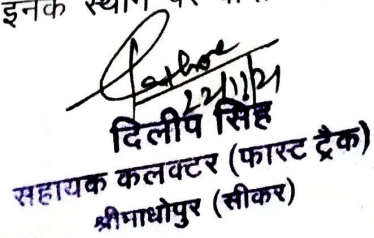 इनके स्थान पर
दिलीप सिंह
सहायक कलक्टर (फास्ट ट्रैक)
श्रीमाधोपुर (सीकर)